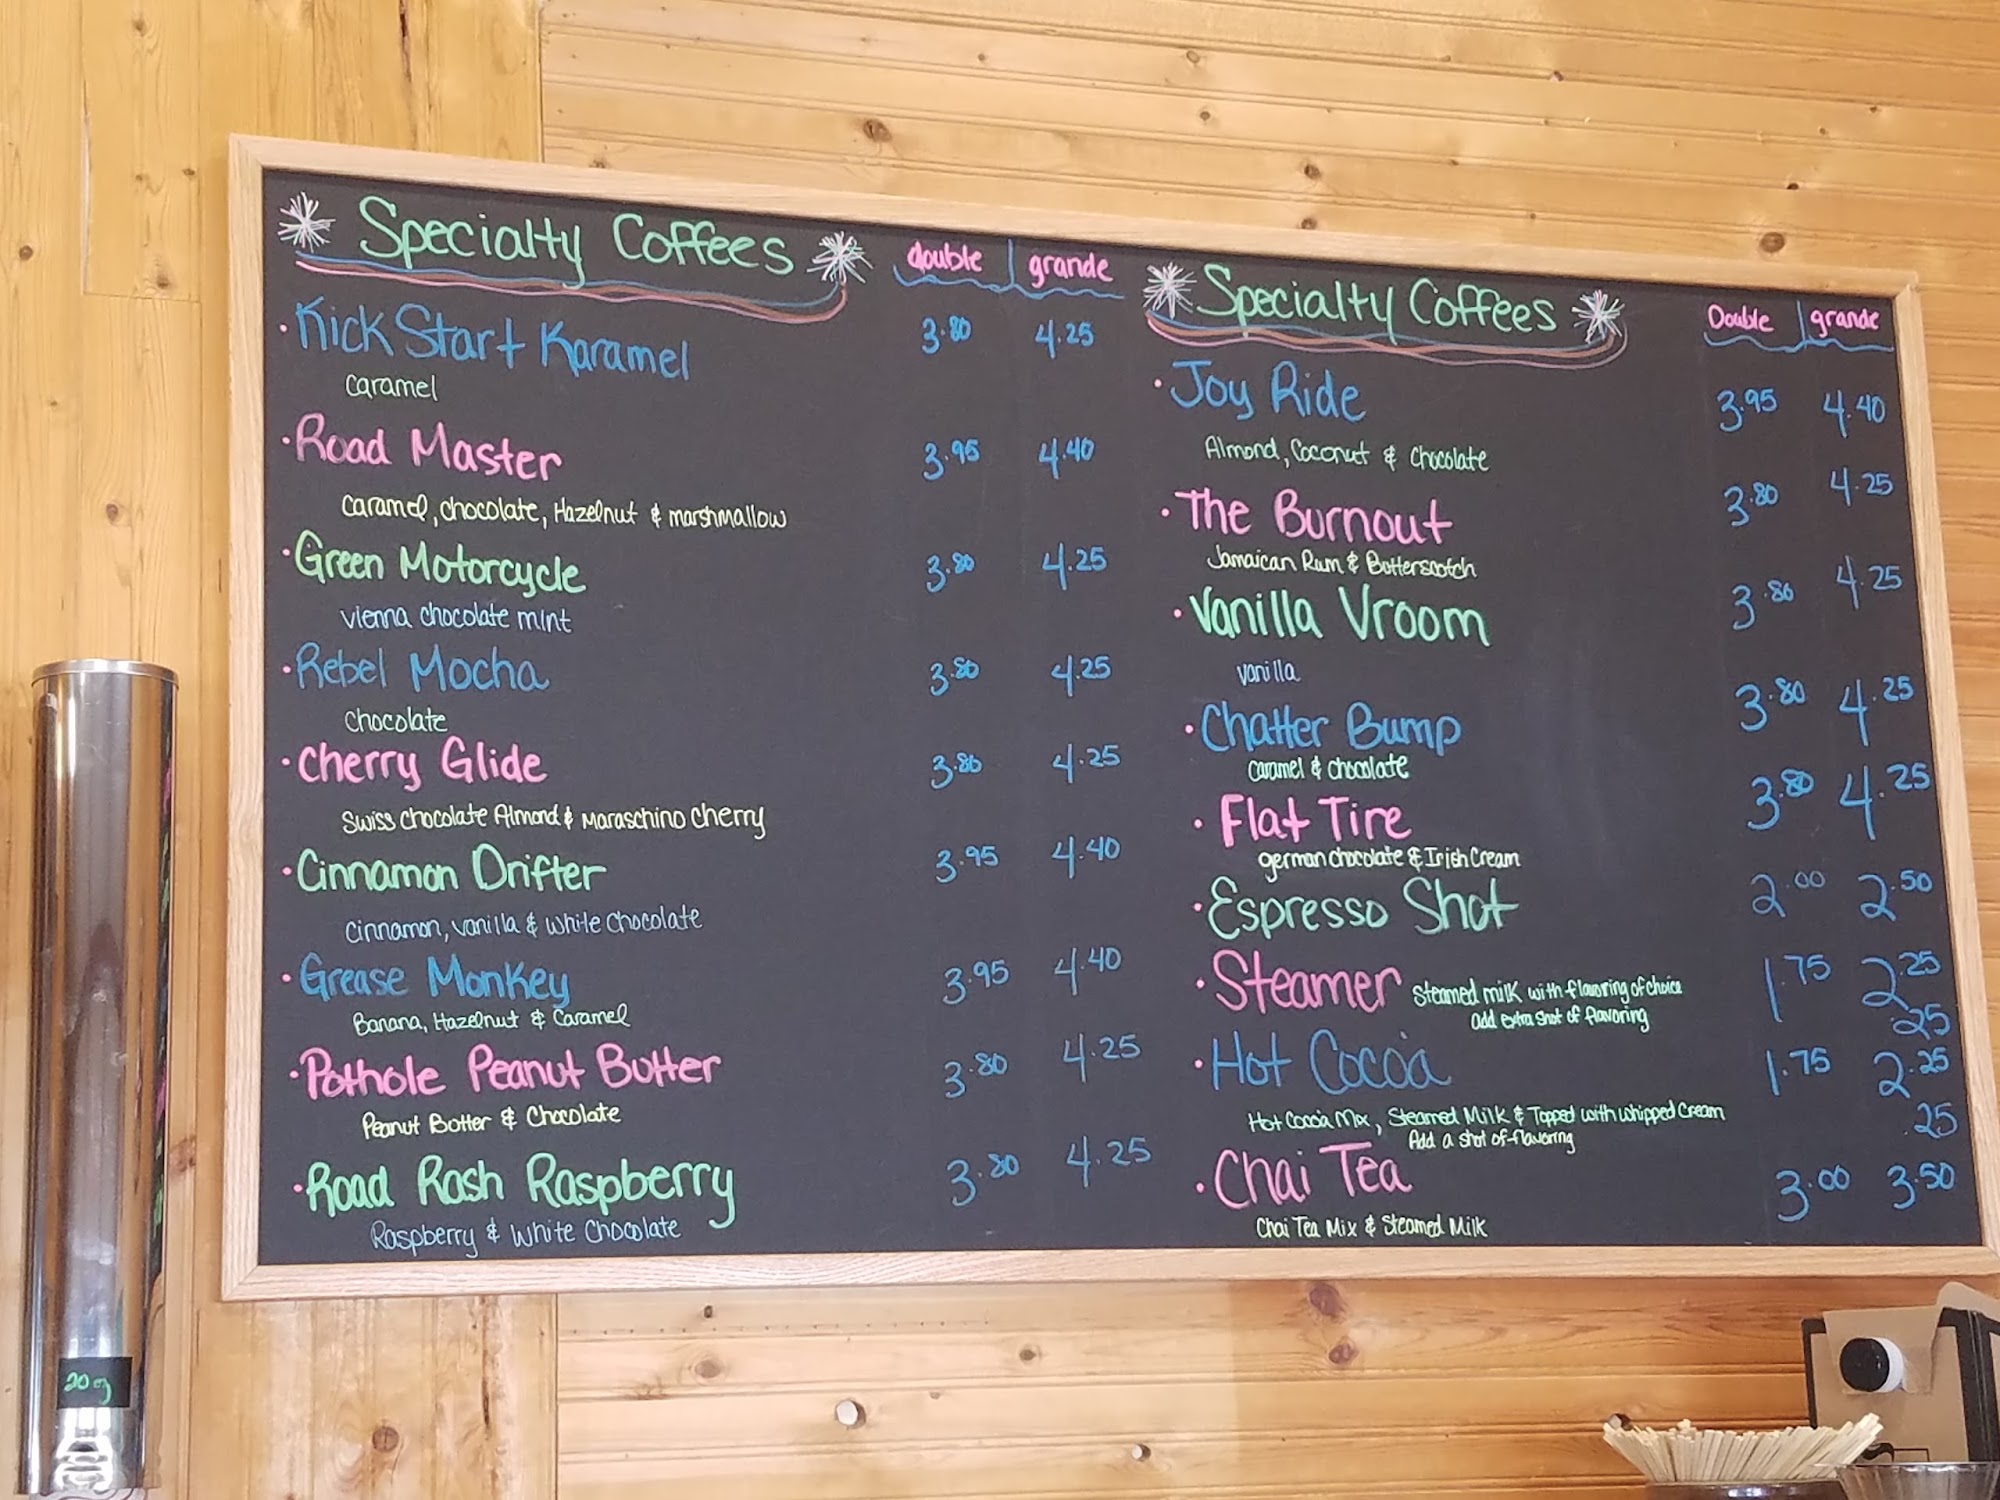 Specialty Coffees double grande
Kick Start Karamel 3.80 4.25
caramel
Road Master 3.95 4.40
caramel, chocolate, Hazelnut & marshmallow
Green Motorcycle 3.80 4.25
vienna chocolate mint
Rebel Mocha 3.80 4.25
chocolate
Cherry Glide 3.80 4.25
Swiss chocolate Almond & Maraschino cherry
Cinnamon Drifter 3.95 4.40
cinnamon, vanilla & white chocolate
Grease Monkey 3.95 4.40
Banana, Hazelnut & Caramel
Pothole Peanut Butter 3.80 4.25
Peanut Butter & Chocolate
Road Rash Raspberry 3.80 4.25
Raspberry & White Chocolate
Specialty Coffees Double grande
Joy Ride 3.95 4.40
Almond, Coconut & Chocolate
The Burnout 3.80 4.25
Jamaican Rum & Butterscotch
Vanilla Vroom 3.80 4.25
vanilla
Chatter Bump 3.80 4.25
caramel & chocolate
Flat Tire 3.80 4.25
german chocolate & Irish Cream
Espresso Shot 2.00 2.50
Steamer steamed milk with flavoring of choice 1.75 2.25
add extra shot of flavoring .25
Hot Cocoa 1.75 2.25
Hot Cocoa Mix, Steamed Milk & Topped with whipped Cream
Add a shot of flavoring .25
Chai Tea 3.00 3.50
Chai Tea Mix & Steamed Milk
20 oz